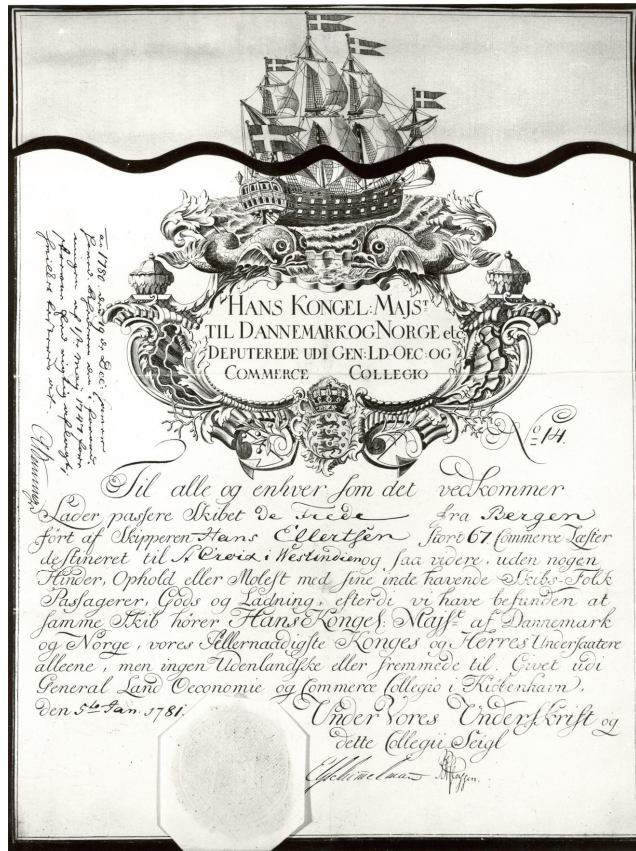 HANS KONGEL: MAJS.T
TIL DANNEMARK OG NORGE etc
DEPUTEREDE UDI GEN: LD-OEC: OG
COMMERCE COLLEGIO
No. 14.
Til alle og enhver som det vedkommer
Lader passere Skibet De Frede fra Bergen
ført af Skipperen Hans Ellertsen stort 67 Commerce Læster
destineret til St Croix i Westindien og saa videre, uden nogen
Hinder, Ophold eller Molest med sine inde havende Skibs-Folk
Passagerer, Gods og Ladning, efterdi vi have befunden at
samme Skib hører Hans Kongel. Majst. af Dannemark
og Norge, vores Allernaadigste Konges og Herres Undersaatere
alleene, men ingen Udenlandske eller fremmede til. Givet udi
General Land Oeconomie og Commerce Collegio i Kiöbenhavn,
den 5te Jan. 1781.
Under Vores Underskrift og
dette Collegii Seigl
Schimmelmann